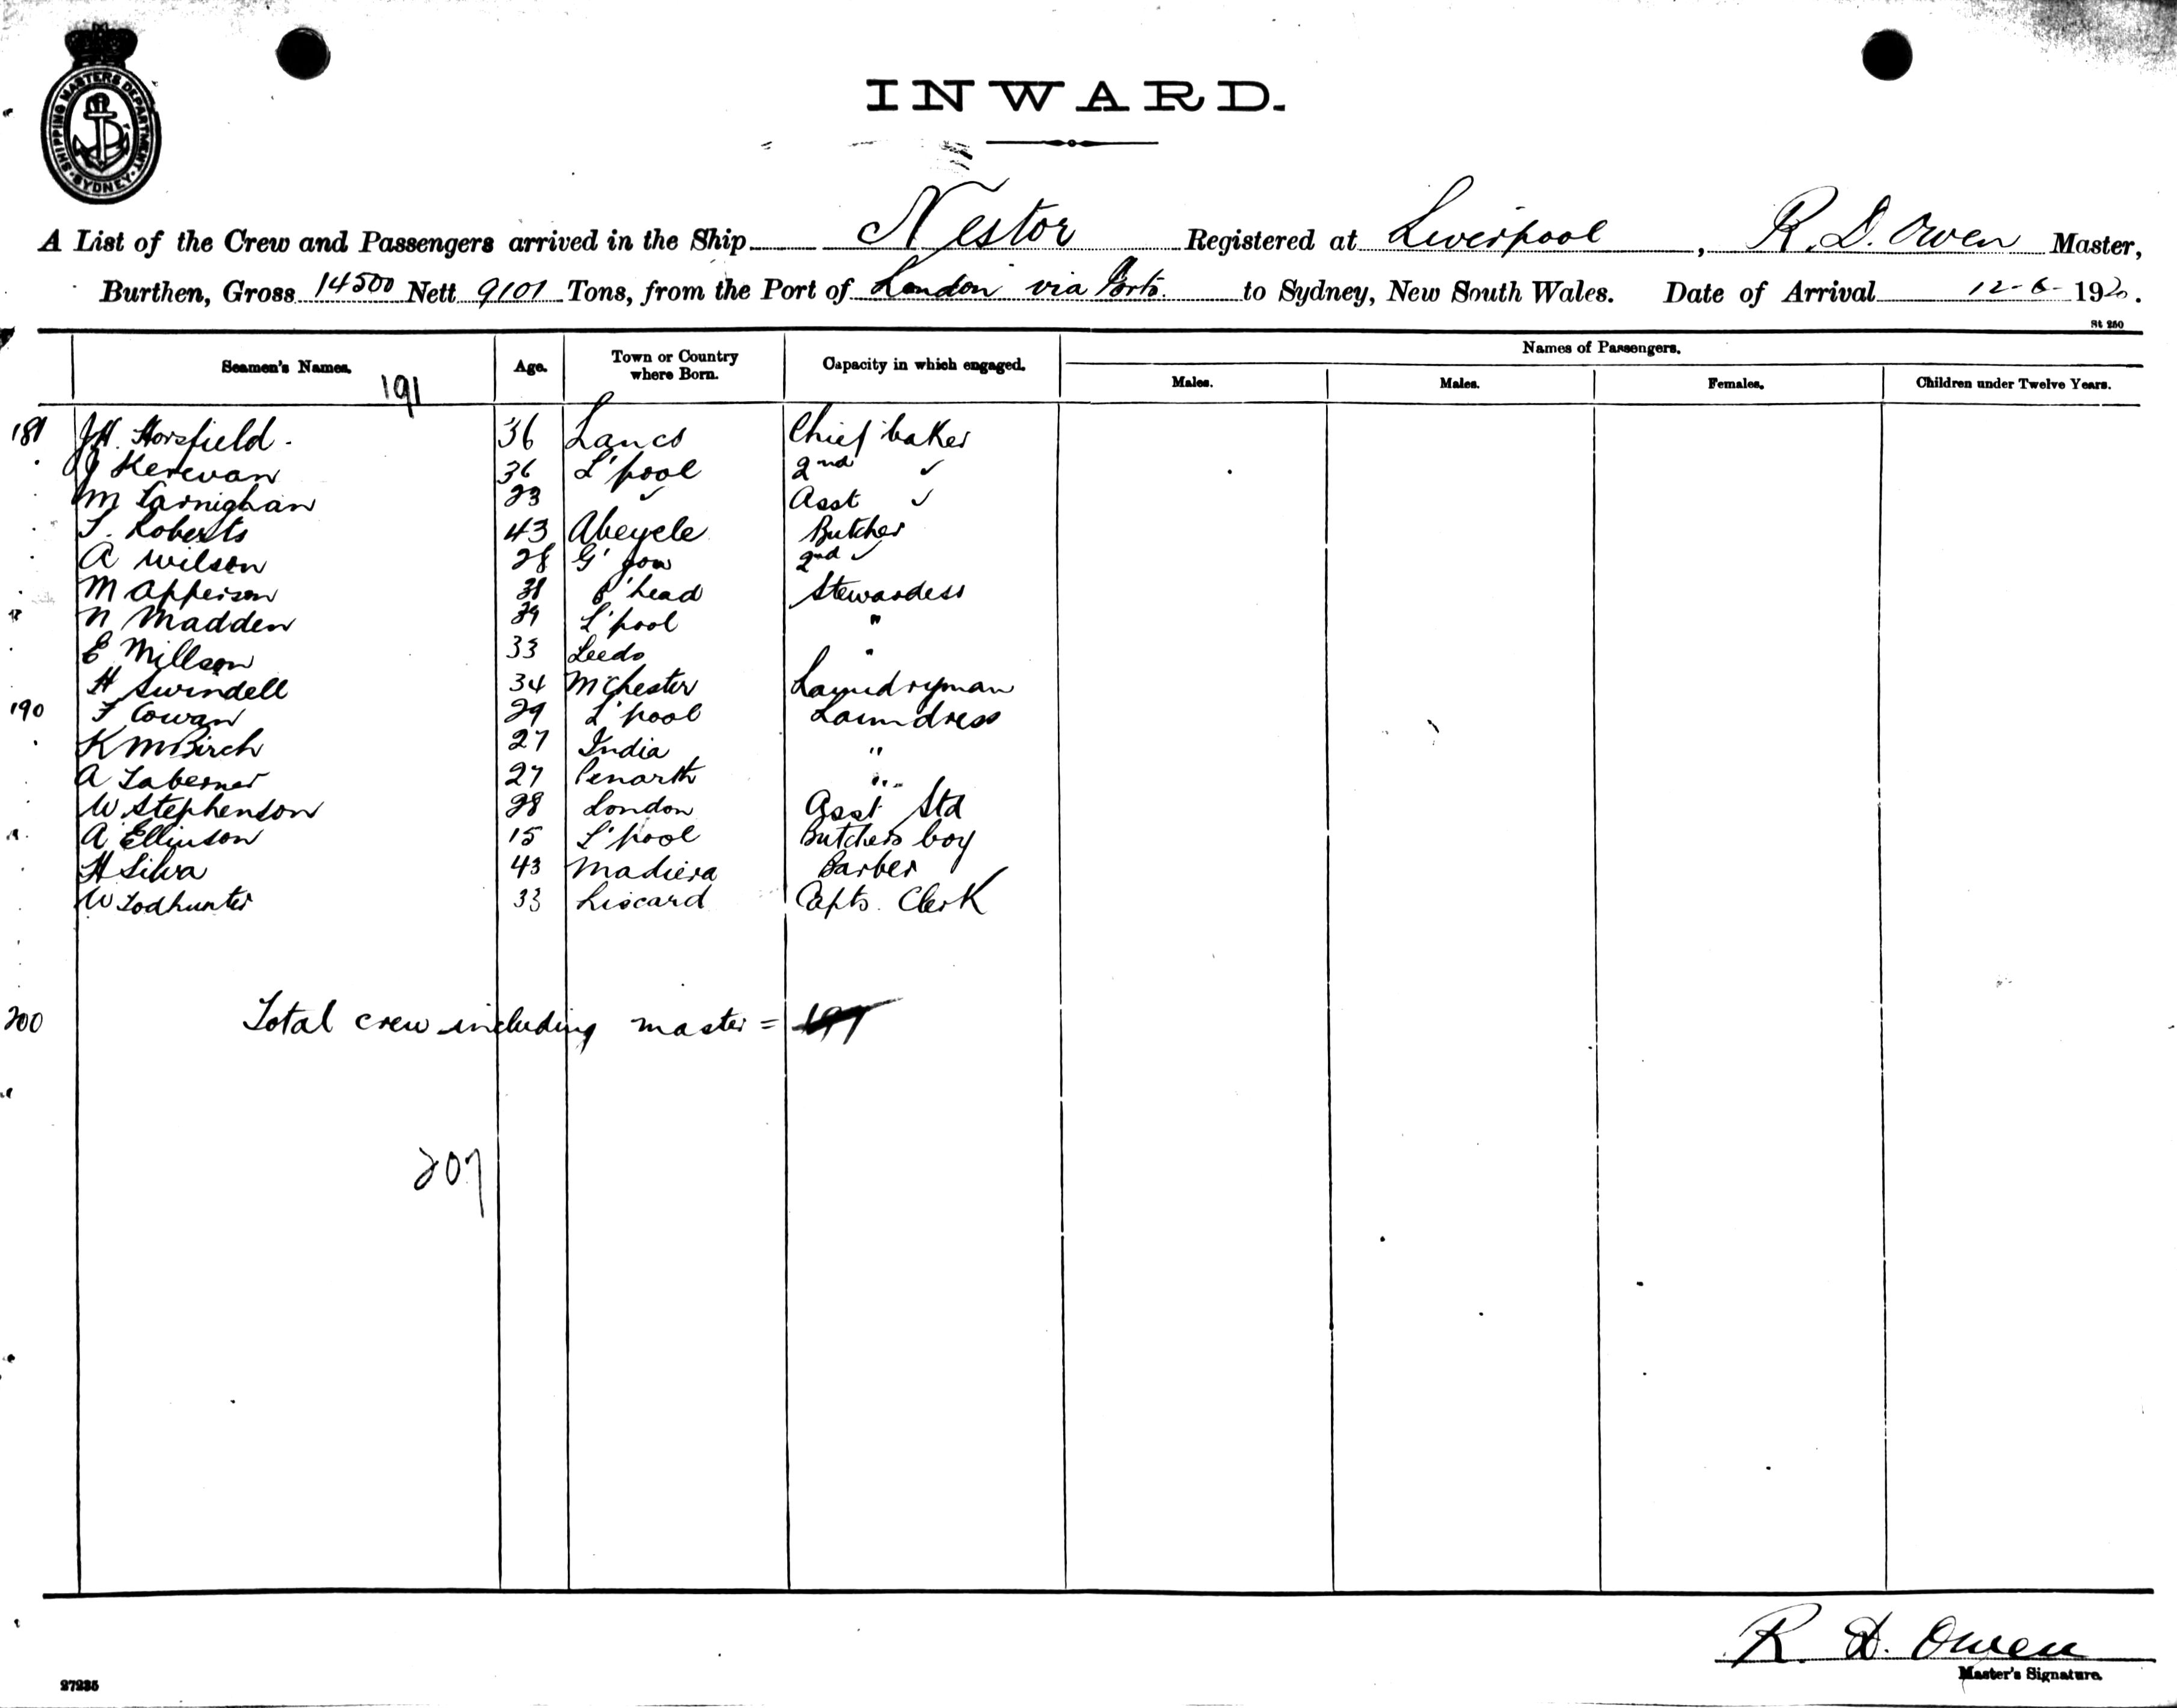 SHIPPING MASTERS DEPARTMENT
SYDNEY
INWARD.
A List of the Crew and Passengers arrived in the Ship Nestor Registered at Liverpool, R. D. Owen Master,
Burthen, Gross 14500 Nett 9101 Tons, from the Port of London via Ports. to Sydney, New South Wales. Date of Arrival 12-6-1920.
St 250
Seamen's Names. Age. Town or Country where Born. Capacity in which engaged. Names of Passengers.
Males. Males. Females. Children under Twelve Years.
191
181 J H. Horsfield. 36 Lancs Chief baker
J Kerevan 36 L'pool 2nd ✓
M Carnighan 23 ✓ Asst ✓
T. Roberts 43 Abeyele Butcher
A Wilson 28 G'gow 2nd ✓
M Apperson 38 B'head Stewardess
N Madden 29 L'pool "
E Millson 33 Leeds "
H Swindell 34 McHester Laundryman
190 F Cowan 29 L'pool Laundress
K M Birch 27 India "
A Taberner 27 Penarth "
W Stephenson 28 London Asst Std
A Ellinson 15 L'pool Butchers boy
H Silva 43 Madiera Barber
W Todhunter 33 Liscard Capts. Clerk
200 Total crew including master = 197
207
R. D. Owen
Master's Signature.
27235